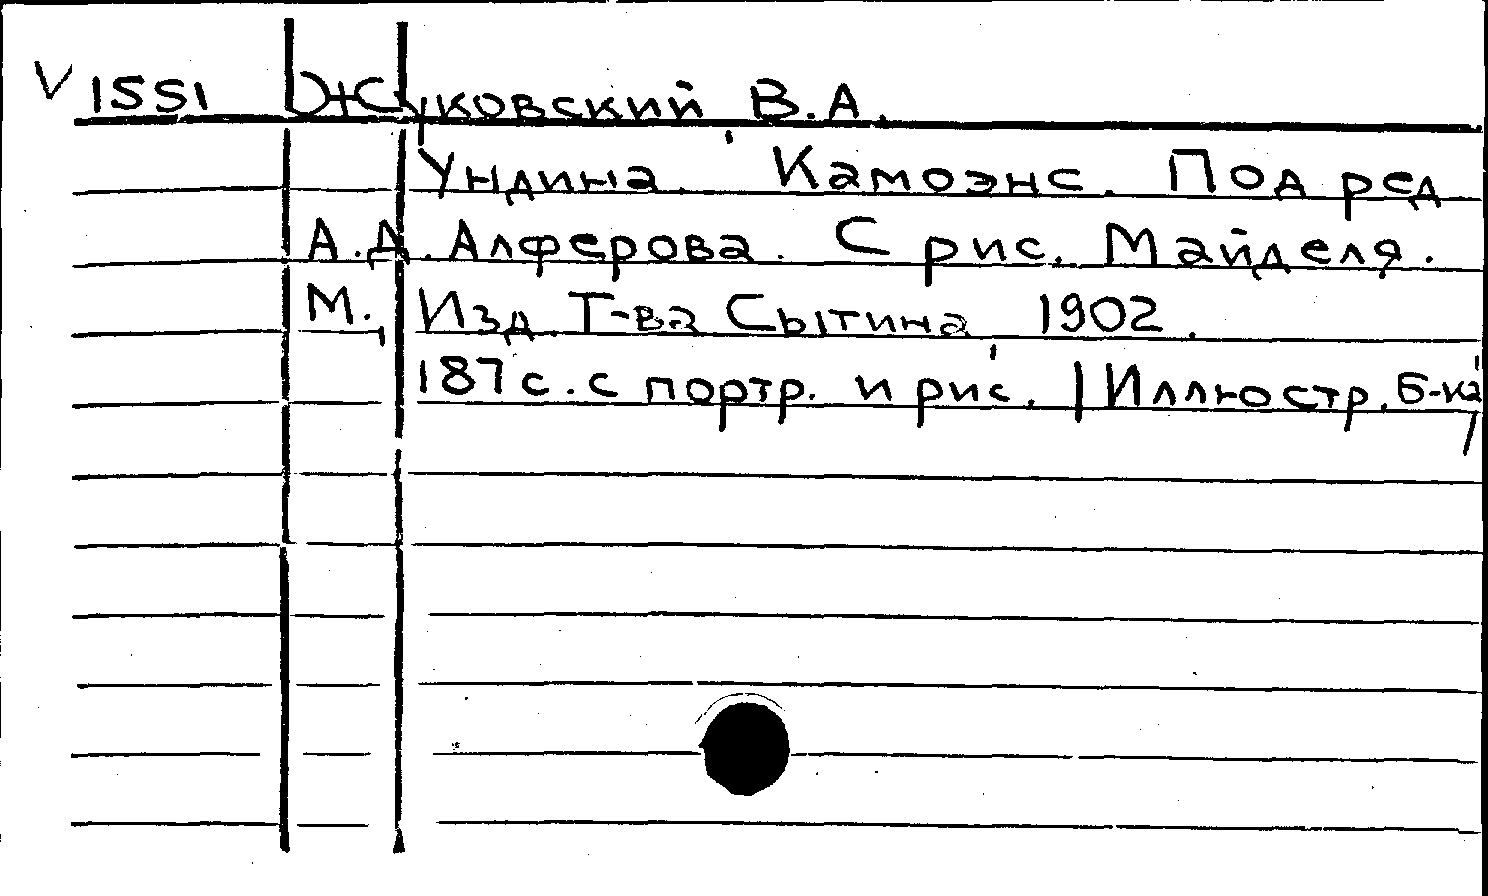 V 1551 Жуковский В.А.
Ундина. Камоэнс. Под ред
А.Д. Алферова. С рис. Майделя.
М., Изд. Т-ва Сытина, 1902.
187 с. с портр. и рис. /Иллюстр. б-ка/